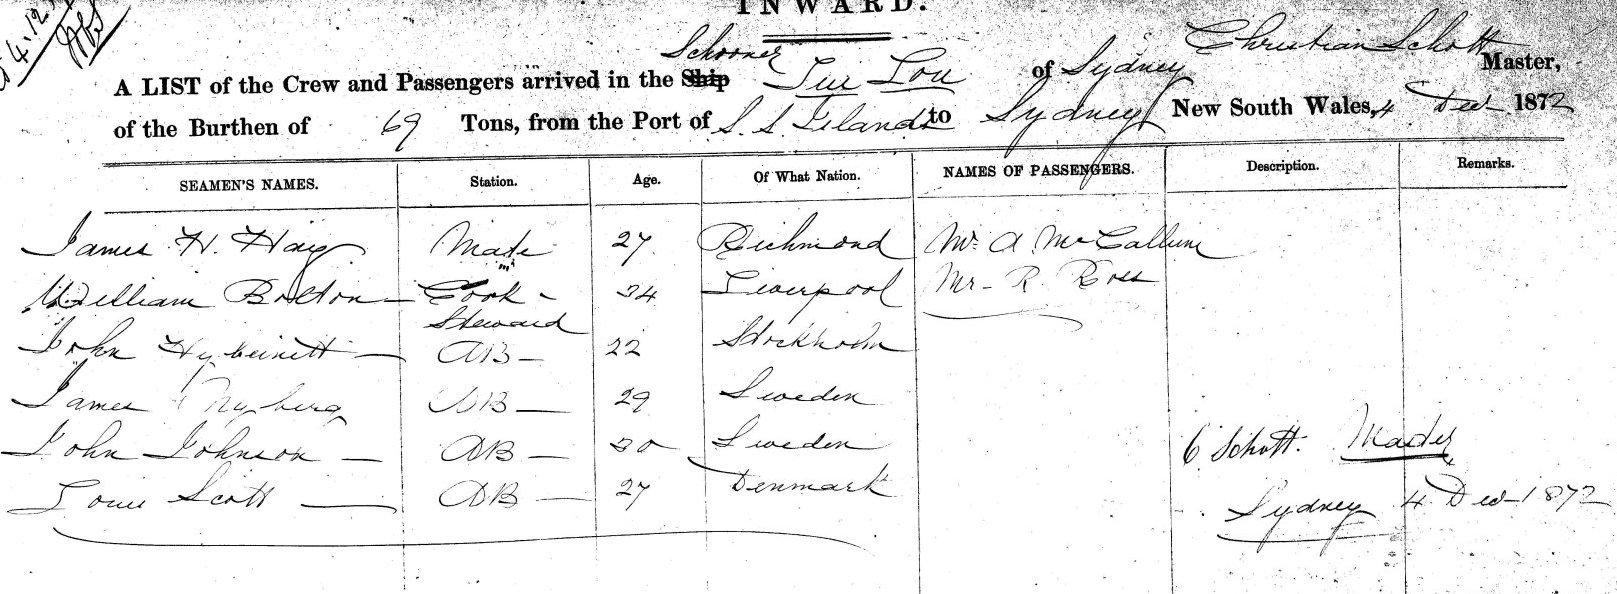 4.12
INWARD.
Schooner
A LIST of the Crew and Passengers arrived in the Ship Lou of Sydney Christian Schott Master,
of the Burthen of 69 Tons, from the Port of S. S. Islands to Sydney New South Wales, 4 Decr 1872
SEAMEN'S NAMES. Station. Age. Of What Nation. NAMES OF PASSENGERS. Description. Remarks.
James H. Haig Mate 27 Richmond Mr. A McCallum
William Bolton Cook - 34 Liverpool Mr. R. Ross
Steward
John AB 22 Stockholm
James Nyberg AB 29 Sweden
John Johnson AB 30 Sweden C. Schott. Master
Louis Scott AB 27 Denmark
Sydney 4 Decr 1872